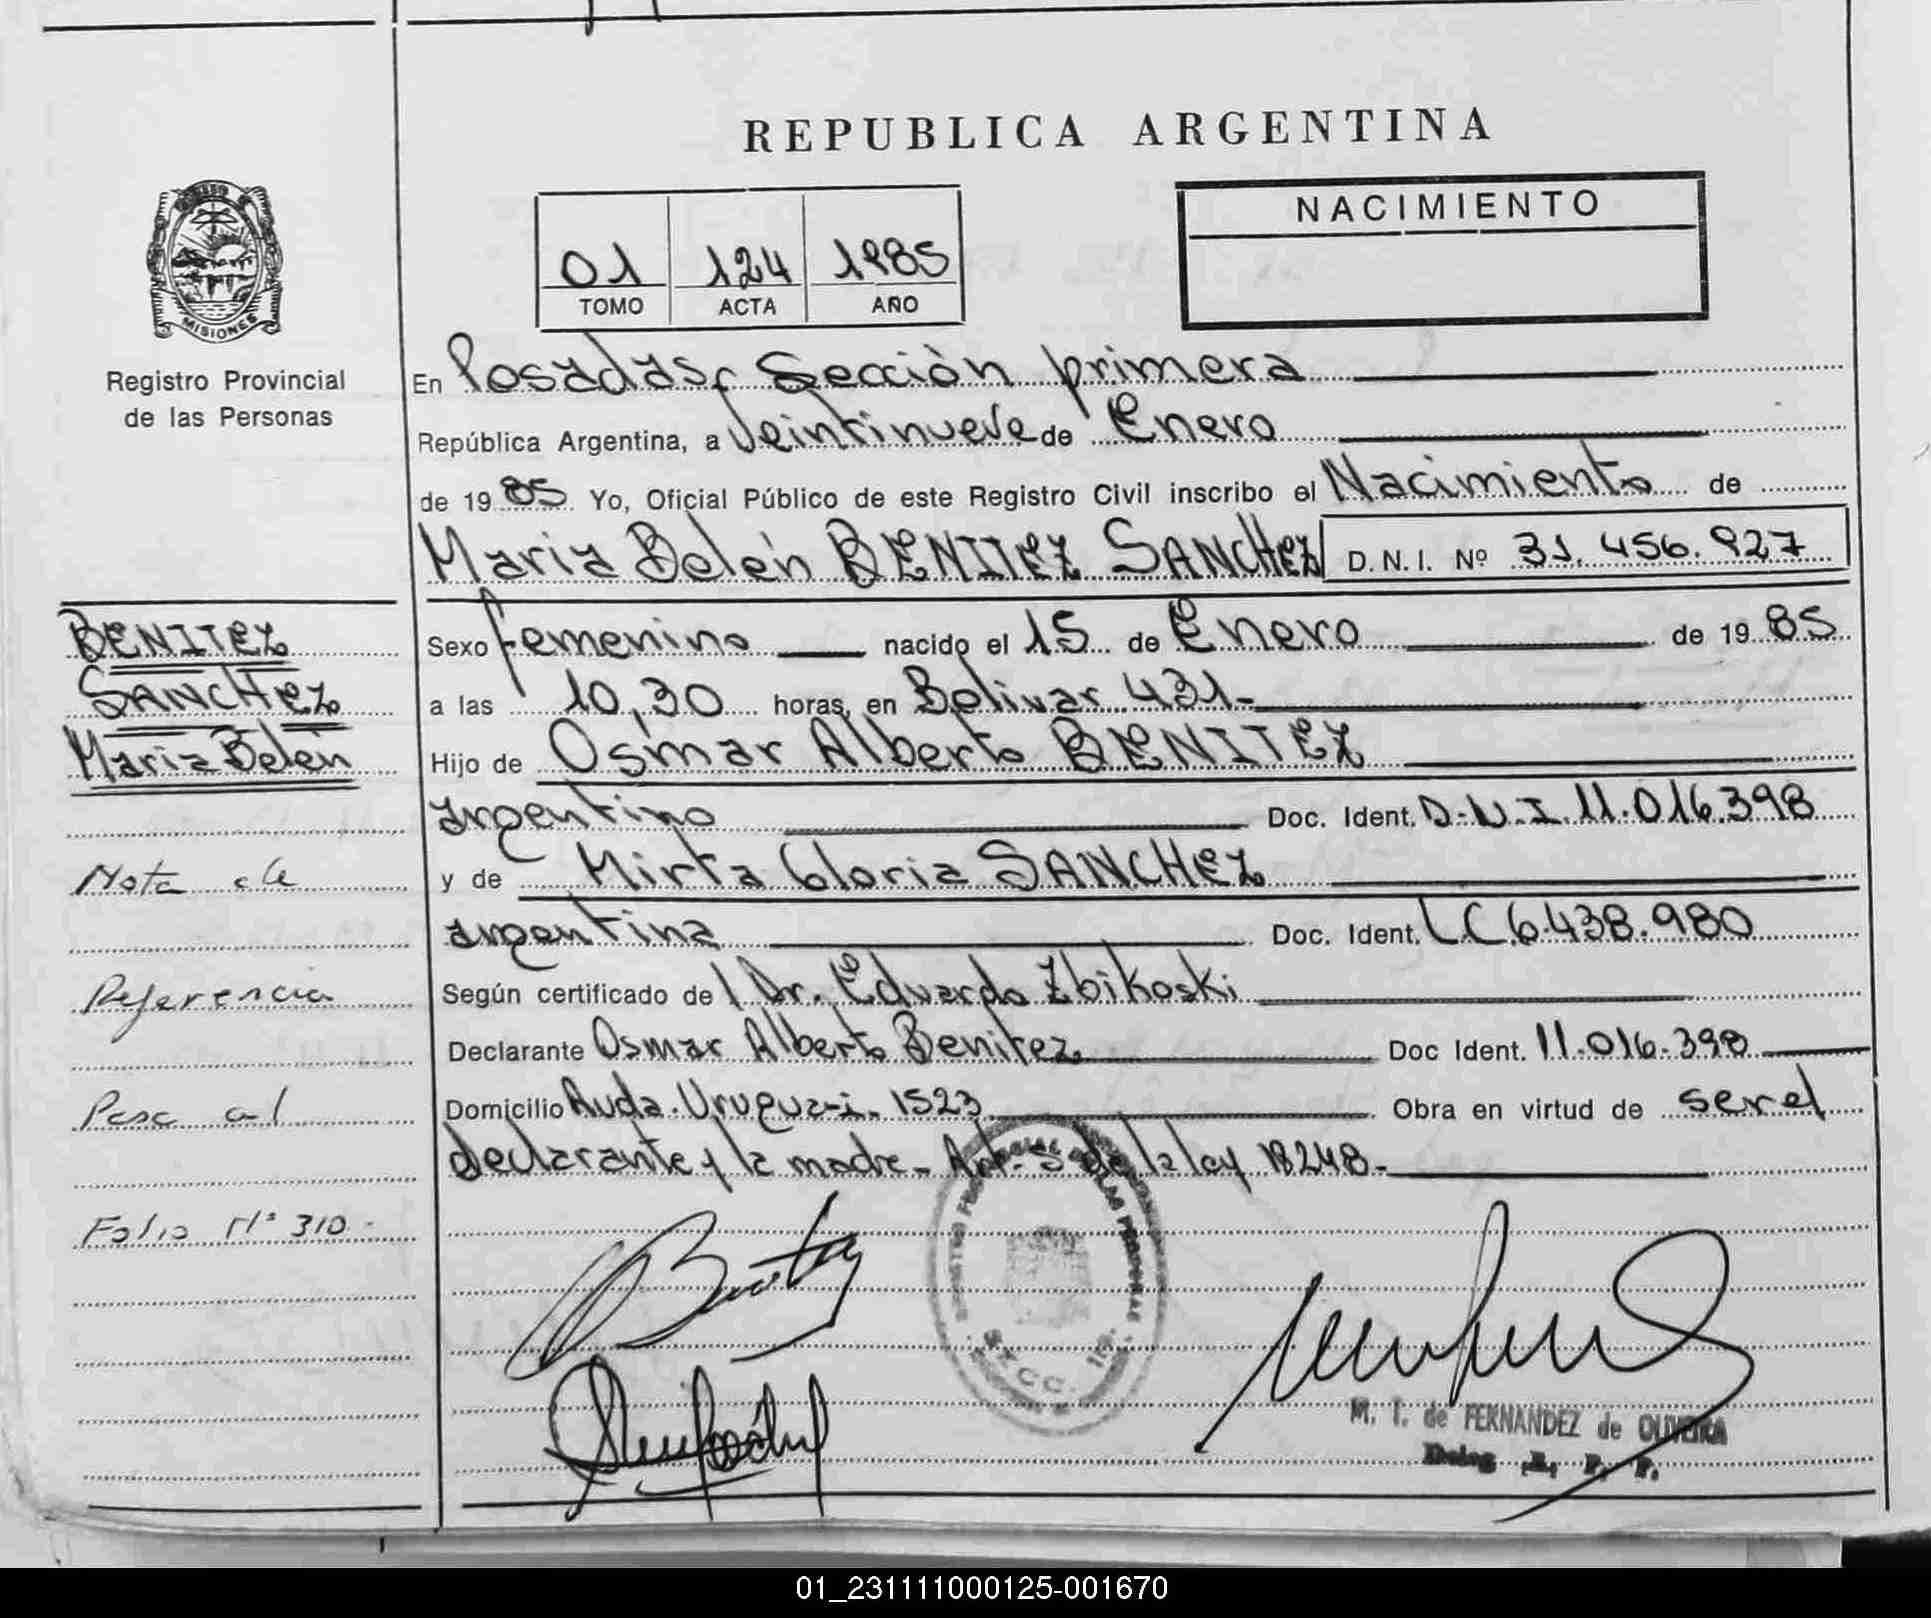 REPUBLICA ARGENTINA
NACIMIENTO
01 124 1985
TOMO ACTA AÑO
MISIONES
Registro Provincial
de las Personas
En Posadas, Sección primera
República Argentina, a Veintinueve de Enero
de 1985 Yo, Oficial Público de este Registro Civil inscribo el Nacimiento de
Maria Belén BENITEZ SANCHEZ D. N. I. Nº 31.456.927
Sexo femenino nacido el 15 de Enero de 1985
a las 10,30 horas, en Bolivar 431-
Hijo de Osmar Alberto BENITEZ
argentino Doc. Ident. D.N.I. 11.016.398
y de Mirta Gloria SANCHEZ
argentina Doc. Ident. LC 6.438.980
Según certificado del Dr. Eduardo Zbikoski
Declarante Osmar Alberto Benitez Doc Ident. 11.016.398
Domicilio Avda. Uruguai. 1523 Obra en virtud de ser el
declarante y la madre- Art. 5 de la ley 18248-
BENITEZ
SANCHEZ
Maria Belén
Nota de
Referencia
Pasa al
Folio Nº 310.-
SECC. 1ra.
M. I. de FERNANDEZ de OLIVEIRA
01_231111000125-001670